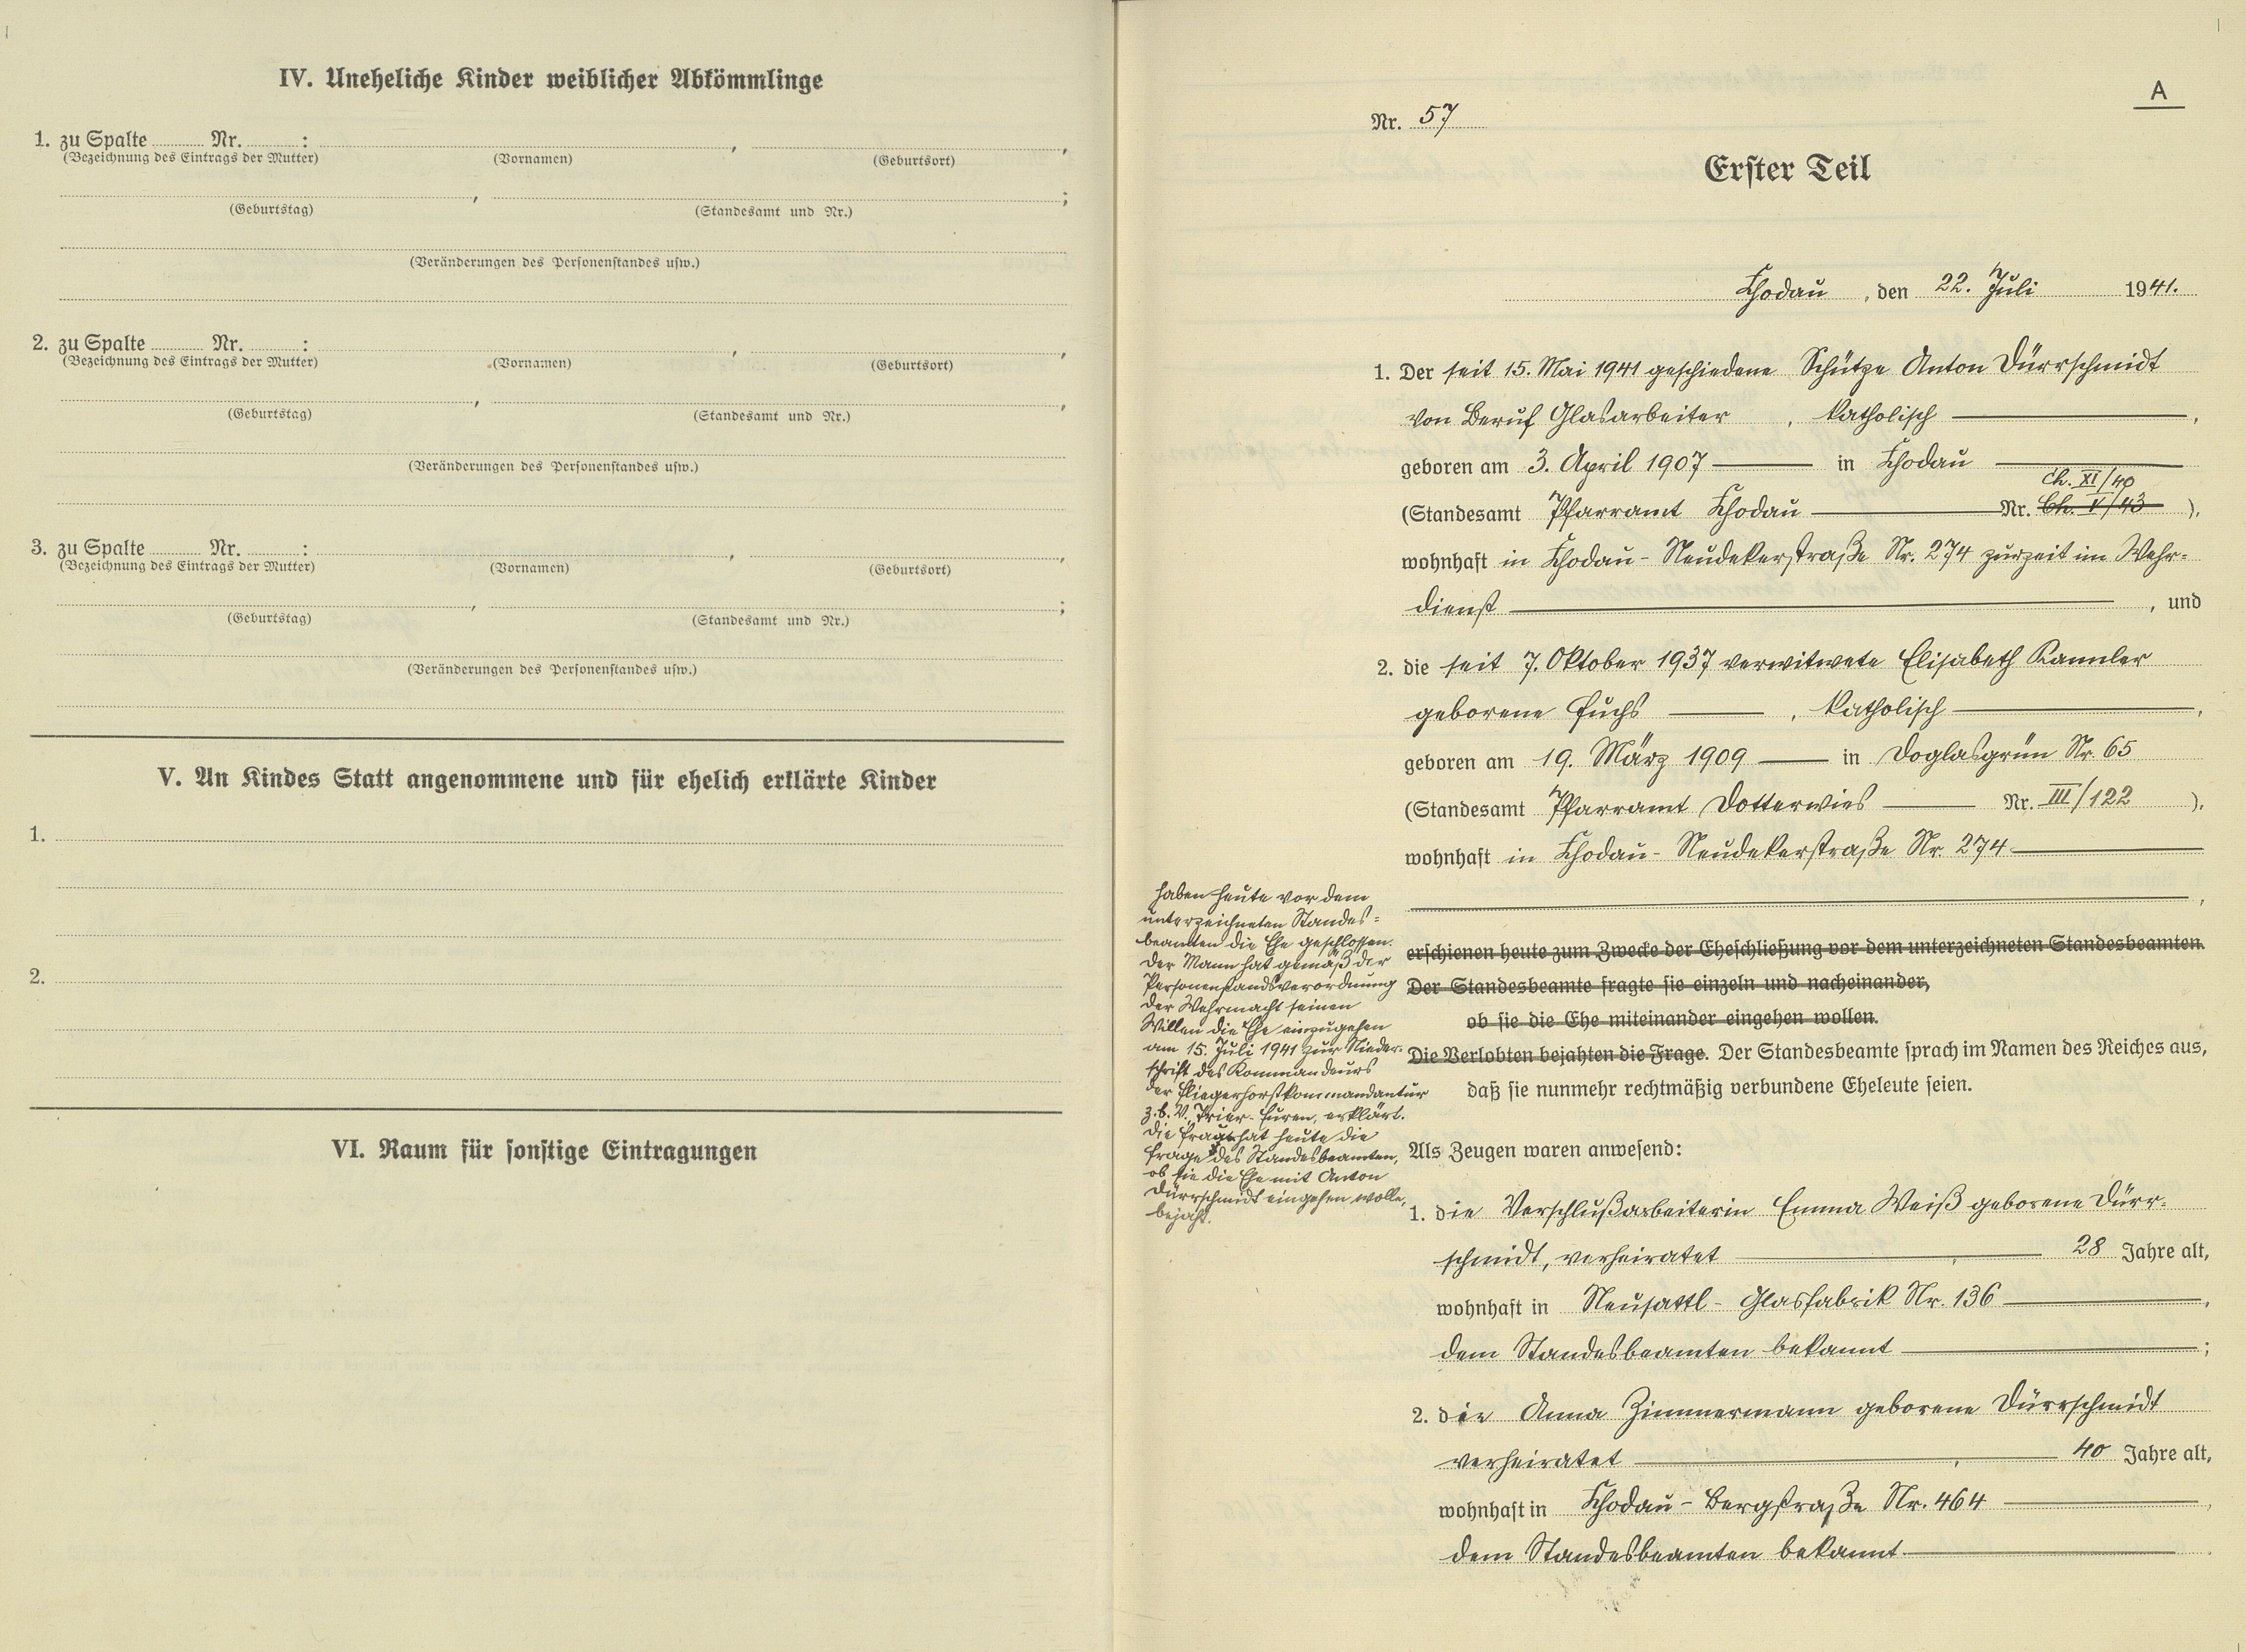 IV. Uneheliche Kinder weiblicher Abkömmlinge
1. zu Spalte ........ Nr. ........ :
(Bezeichnung des Eintrags der Mutter) (Vornamen) (Geburtsort)
(Geburtstag) (Standesamt und Nr.)
(Veränderungen des Personenstandes usw.)
2. zu Spalte ........ Nr. ........ :
(Bezeichnung des Eintrags der Mutter) (Vornamen) (Geburtsort)
(Geburtstag) (Standesamt und Nr.)
(Veränderungen des Personenstandes usw.)
3. zu Spalte ........ Nr. ........ :
(Bezeichnung des Eintrags der Mutter) (Vornamen) (Geburtsort)
(Geburtstag) (Standesamt und Nr.)
(Veränderungen des Personenstandes usw.)
V. An Kindes Statt angenommene und für ehelich erklärte Kinder
1.
2.
VI. Raum für sonstige Eintragungen
A
Nr. 57
Erster Teil
Chodau, den 22. Juli 1941.
1. Der seit 15. Mai 1941 geschiedene Schütze Anton Dürrschmidt
von Beruf Glasarbeiter, katholisch,
geboren am 3. April 1907 in Chodau
Ch. XI/40
(Standesamt Pfarramt Chodau Nr. Ch. V/43),
wohnhaft in Chodau-Neudekerstraße Nr. 274 zurzeit im Wehr-
dienst, und
2. die seit 7. Oktober 1937 verwitwete Elisabeth Kannler
geborene Fuchs, katholisch,
geboren am 19. März 1909 in Doglasgrün Nr. 65
(Standesamt Pfarramt Dotterwies Nr. III/122),
wohnhaft in Chodau-Neudekerstraße Nr. 274
,
haben heute vor dem
unterzeichneten Standes-
beamten die Ehe geschlossen.
Der Mann hat gemäß der
Personenstandsverordnung
der Wehrmacht seinen
Willen die Ehe einzugehen
am 15. Juli 1941 zur Nieder-
schrift des Kommandeurs
der Fliegerhorstkommandantur
z.b.V. Trier-Euren, erklärt.
Die Frau hat heute die
Frage des Standesbeamten,
ob sie die Ehe mit Anton
Dürrschmidt eingehen wolle,
bejaht.
erschienen heute zum Zwecke der Eheschließung vor dem unterzeichneten Standesbeamten.
Der Standesbeamte fragte sie einzeln und nacheinander,
ob sie die Ehe miteinander eingehen wollen.
Die Verlobten bejahten die Frage. Der Standesbeamte sprach im Namen des Reiches aus,
daß sie nunmehr rechtmäßig verbundene Eheleute seien.
Als Zeugen waren anwesend:
1. die Verschlußarbeiterin Emma Weiß geborene Dürr-
schmidt, verheiratet, 28 Jahre alt,
wohnhaft in Neusattl-Glasfabrik Nr. 136,
dem Standesbeamten bekannt;
2. die Anna Zimmermann geborene Dürrschmidt
verheiratet, 40 Jahre alt,
wohnhaft in Chodau-Bergstraße Nr. 464,
dem Standesbeamten bekannt.